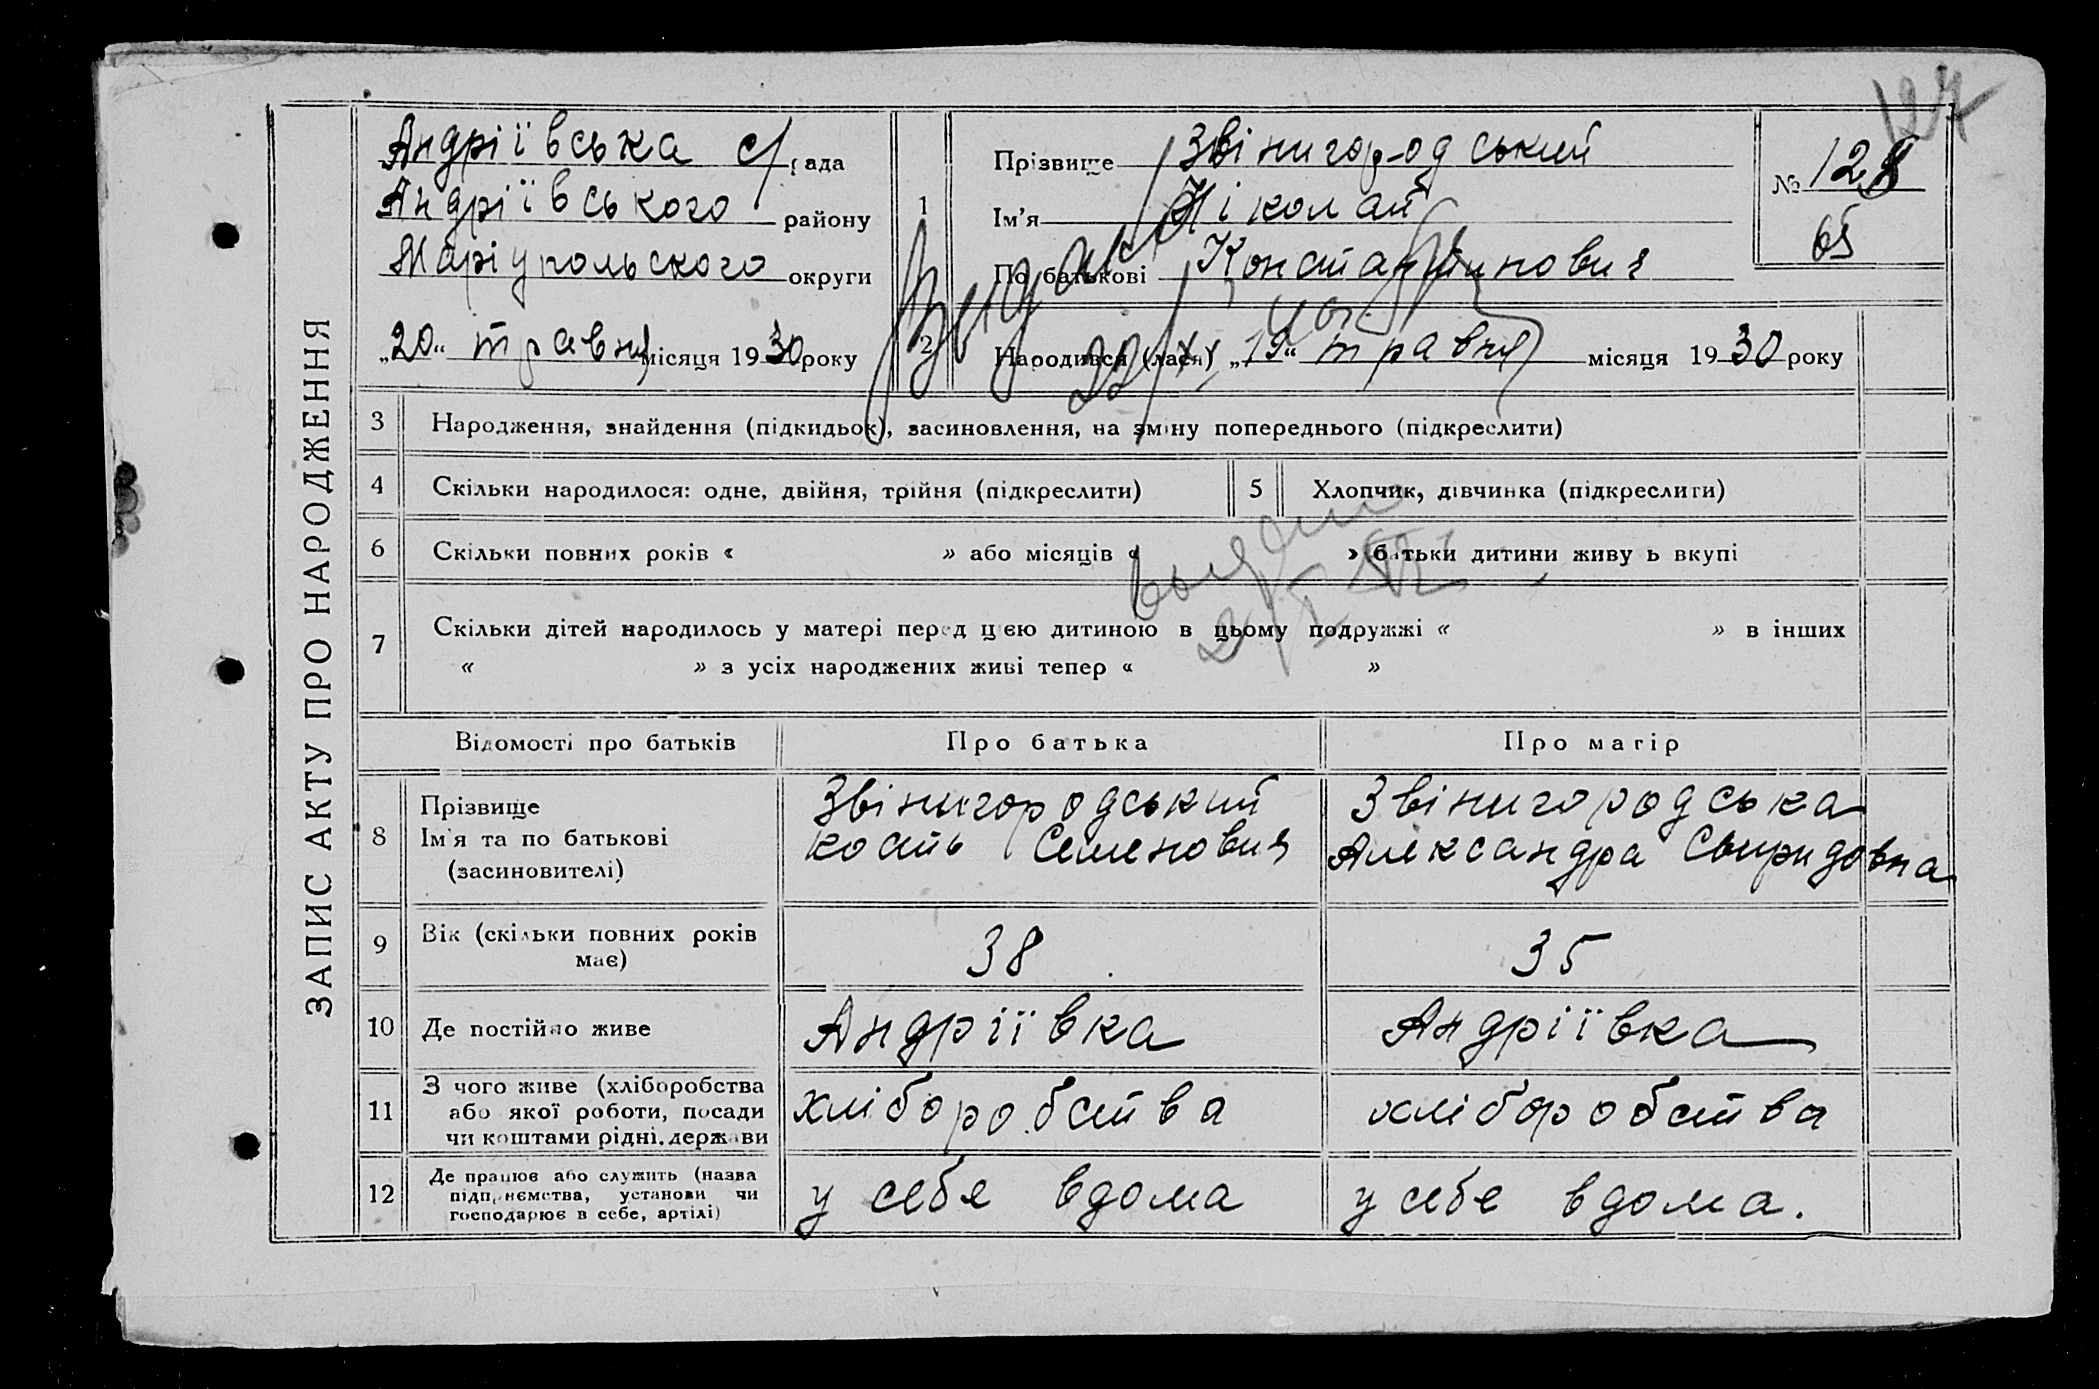 127
ЗАПИС АКТУ ПРО НАРОДЖЕННЯ
Андріївська с/рада
Андріївського району
Маріупольского округи
„20“ травня місяця 1930 року
1
Прізвище Звінигородський
Ім'я Ніколай
По батькові Константинович
№ 128
65
2
Народився (лася) „19“ травня місяця 1930 року
3 Народження, знайдення (підкидьок), засиновлення, на зміну попереднього (підкреслити)
4 Скільки народилося: одне, двійня, трійня (підкреслити) 5 Хлопчик, дівчинка (підкреслити)
6 Скільки повних років « » або місяців « » батьки дитини живуть вкупі
7 Скільки дітей народилось у матері перед цією дитиною в цьому подружжі « » в інших
« » з усіх народжених живі тепер « »
Відомості про батьків Про батька Про матір
8 Прізвище
Ім'я та по батькові
(засиновителі)
Звінигородський
Кость Семенович
Звінигородська
Александра Свиридовна
9 Вік (скільки повних років
має)
38 35
10 Де постійно живе Андріївка Андріївка
11 З чого живе (хліборобства
або якої роботи, посади
чи коштами рідні, держави
хліборобства хліборобства
12 Де працює або служить (назва
підприємства, установи чи
господарює в себе, артілі)
у себе вдома у себе вдома.